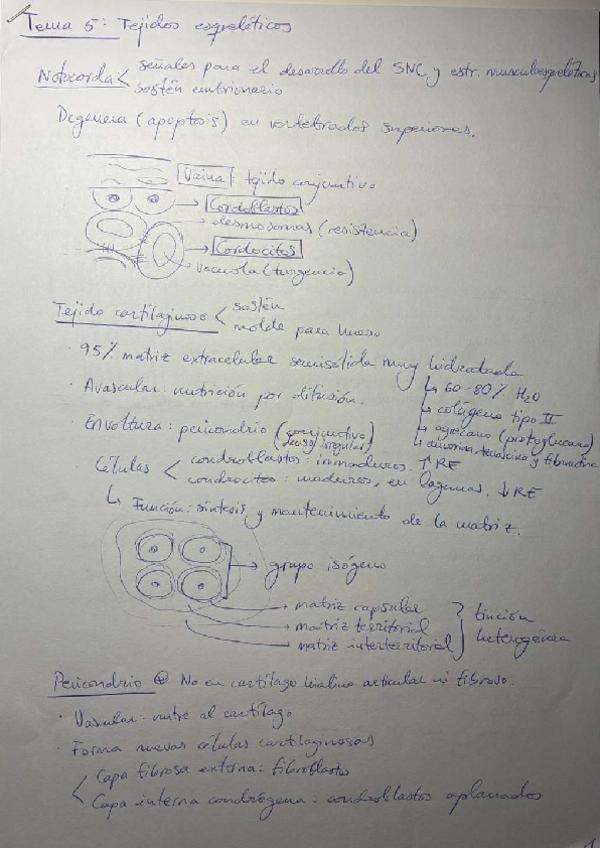 Tema 5: Tejidos esqueléticos
Notocorda < señales para el desarrollo del SNC y estr. musculoesqueléticas
sostén embrionario
Degenera (apoptosis) en vertebrados superiores.
Vaina tejido conjuntivo
→ Cordoblastos
desmosomas (resistencia)
→ Cordocitos
vacuola (turgencia)
Tejido cartilaginoso < sostén
molde para hueso
· 95% matriz extracelular semisólida muy hidratada
↳ 60-80% H2O
· Avascular: nutrición por difusión.
↳ colágeno tipo II
· Envoltura: pericondrio (conjuntivo denso irregular)
↳ agrecano (proteoglucano)
↳ decorina, tenascina y fibronectina
· Células < condroblastos: inmaduros. ↑ RE
condrocitos: maduros, en lagunas. ↓ RE
↳ Función: síntesis y mantenimiento de la matriz.
→ grupo isógeno
→ matriz capsular
→ matriz territorial
→ matriz interterritorial
} tinción heterogénea
Pericondrio No en cartílago hialino articular ni fibroso.
· Vascular: nutre al cartílago
· Forma nuevas células cartilaginosas
< Capa fibrosa externa: fibroblastos
Capa interna condrógena: condroblastos aplanados
1